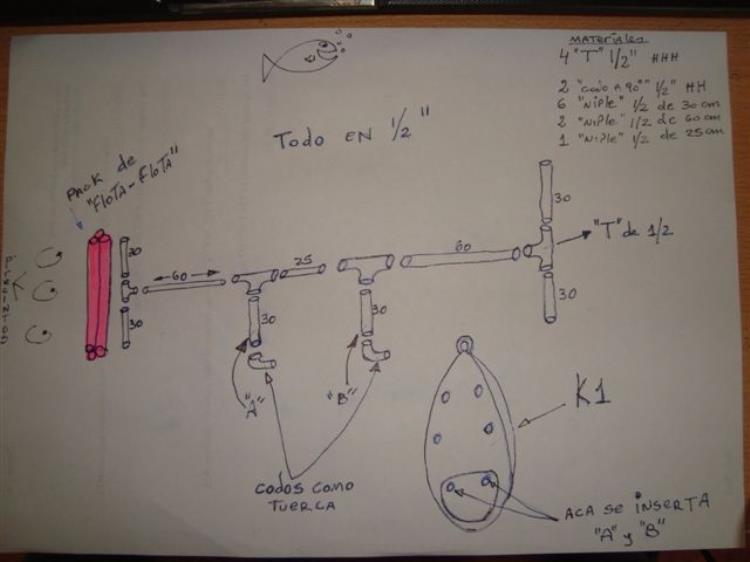 MATERIALES
4 "T" 1/2" HHH
2 "CODO A 90°" 1/2" HH
6 "NIPLE" 1/2 de 30 cm
2 "NIPLE" 1/2 de 60 cm
1 "NIPLE" 1/2 de 25 cm
TODO EN 1/2"
PACK de
"FLOTA-FLOTA"
30
60
30
25
30
30
60
30
30
"T" de 1/2
"A"
"B"
K1
CODOS COMO
TUERCA
ACA SE INSERTA
"A" y "B"